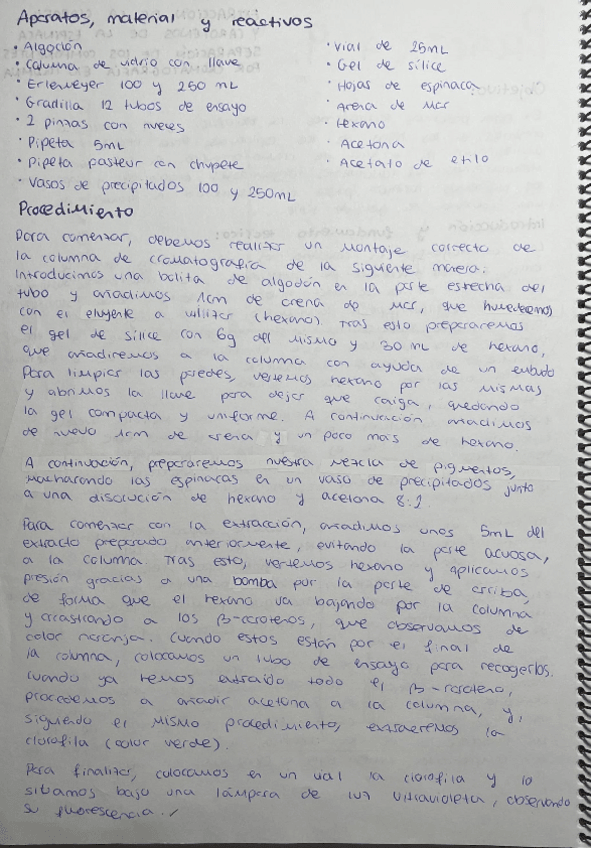 Aparatos, material y reactivos
· Algodón
· Columna de vidrio con llave
· Erlenmeyer 100 y 250 mL
· Gradilla 12 tubos de ensayo
· 2 pinzas con nueces
· Pipeta 5mL
· Pipeta pasteur con chupete
· Vasos de precipitados 100 y 250mL
· Vial de 25mL
· Gel de sílice
· Hojas de espinaca
· Arena de mar
· Hexano
· Acetona
· Acetato de etilo
Procedimiento
Para comenzar, debemos realizar un montaje correcto de
la columna de cromatografía de la siguiente manera.
Introducimos una bolita de algodón en la parte estrecha del
tubo y añadimos 1cm de arena de mar, que humedecemos
con el eluyente a utilizar (hexano). Tras esto prepararemos
el gel de sílice con 6g del mismo y 30 mL de hexano,
que añadiremos a la columna con ayuda de un embudo
Para limpiar las paredes, vertemos hexano por las mismas
y abrimos la llave para dejar que caiga, quedando
la gel compacta y uniforme. A continuación añadimos
de nuevo 1cm de arena y un poco más de hexano.
A continuación, prepararemos nuestra mezcla de pigmentos,
machacando las espinacas en un vaso de precipitados junto
a una disolución de hexano y acetona 8:2
Para comenzar con la extracción, añadimos unos 5mL del
extracto preparado anteriormente, evitando la parte acuosa,
a la columna. Tras esto, vertemos hexano y aplicamos
presión gracias a una bomba por la parte de arriba,
de forma que el hexano va bajando por la columna
y arrastrando a los β-carotenos, que observamos de
color naranja. Cuando estos están por el final de
la columna, colocamos un tubo de ensayo para recogerlos.
Cuando ya hemos extraído todo el β-caroteno,
procedemos a añadir acetona a la columna, y,
siguiendo el mismo procedimiento, extraeremos la
clorofila (color verde).
Para finalizar, colocamos en un vial la clorofila y lo
situamos bajo una lámpara de luz ultravioleta, observando
su fluorescencia.